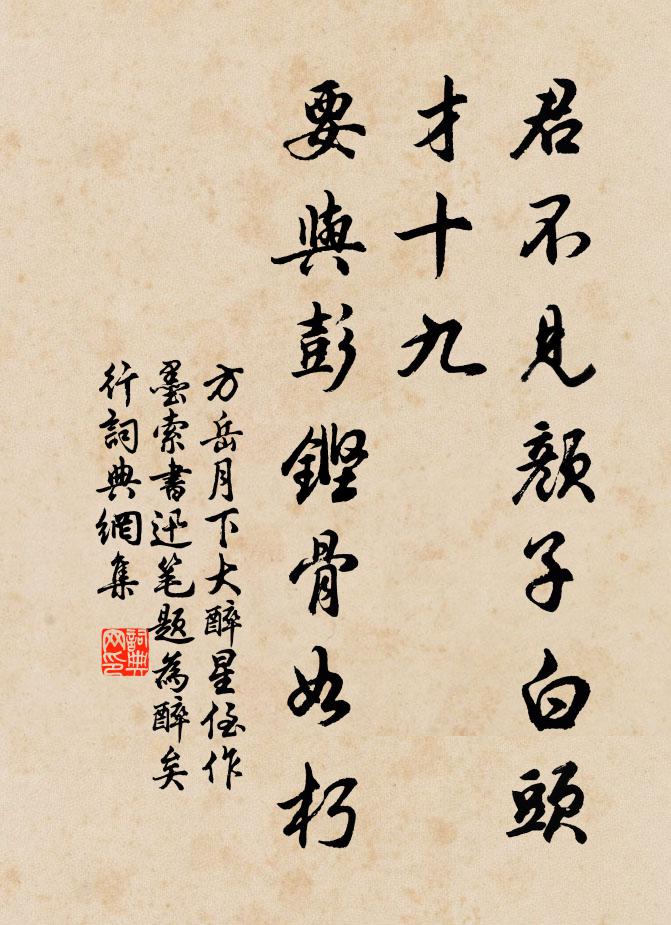 君不见颜子白頭
才十九
要與彭鏗骨如朽
方岳月下大醉星侄作
墨索書迅笔题為醉矣
行詞典網集
詞典
网印